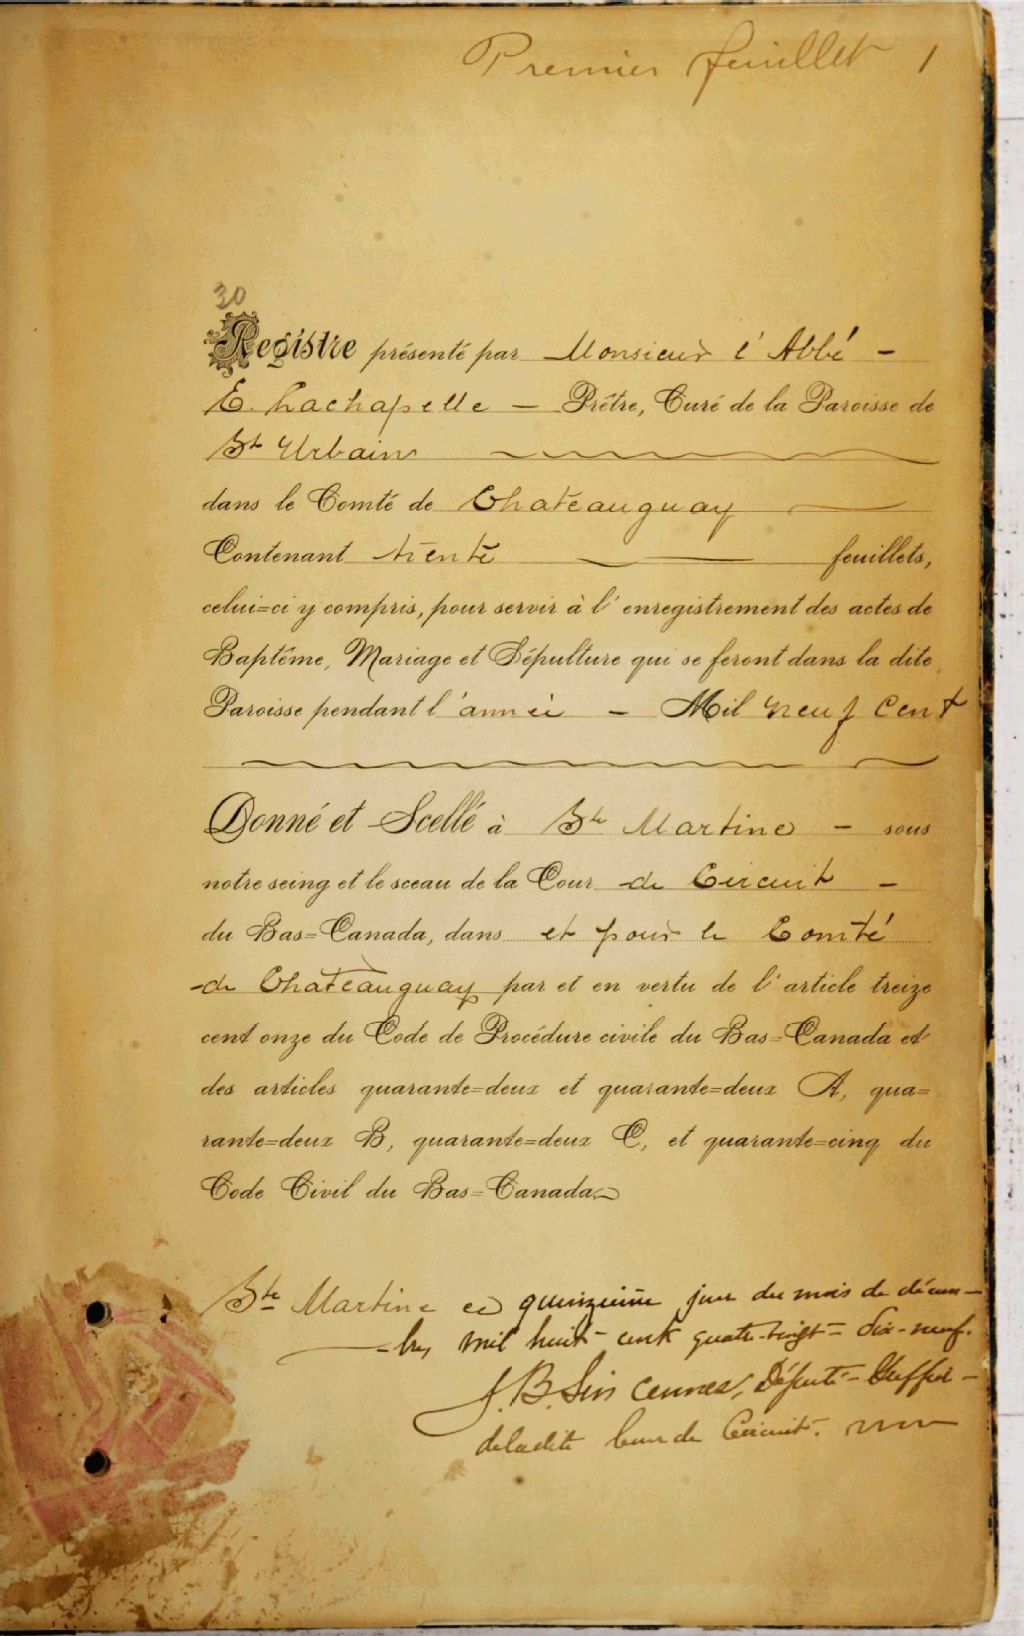 Premier feuillet 1
30
Registre présenté par Monsieur l'Abbé -
E. Lachapelle - Prêtre, Curé de la Paroisse de
St Urbain
dans le Comté de Chateauguay
Contenant trente feuillets,
celui=ci y compris, pour servir à l'enregistrement des actes de
Baptême, Mariage et Sépulture qui se feront dans la dite
Paroisse pendant l'année - Mil neuf Cent
Donné et Scellé à Ste Martine - sous
notre seing et le sceau de la Cour de Circuit -
du Bas=Canada, dans et pour le Comté
de Chateauguay par et en vertu de l'article treize
cent onze du Code de Procédure civile du Bas=Canada et
des articles quarante=deux et quarante=deux A, qua=
rante=deux B, quarante=deux C, et quarante=cinq du
Code Civil du Bas=Canada.
Ste Martine ce quinzième jour du mois de décem-
bre, mil huit cent quatre-vingt-dix-neuf.
J. B. Député-Greffier
de la dite Cour de Circuit.